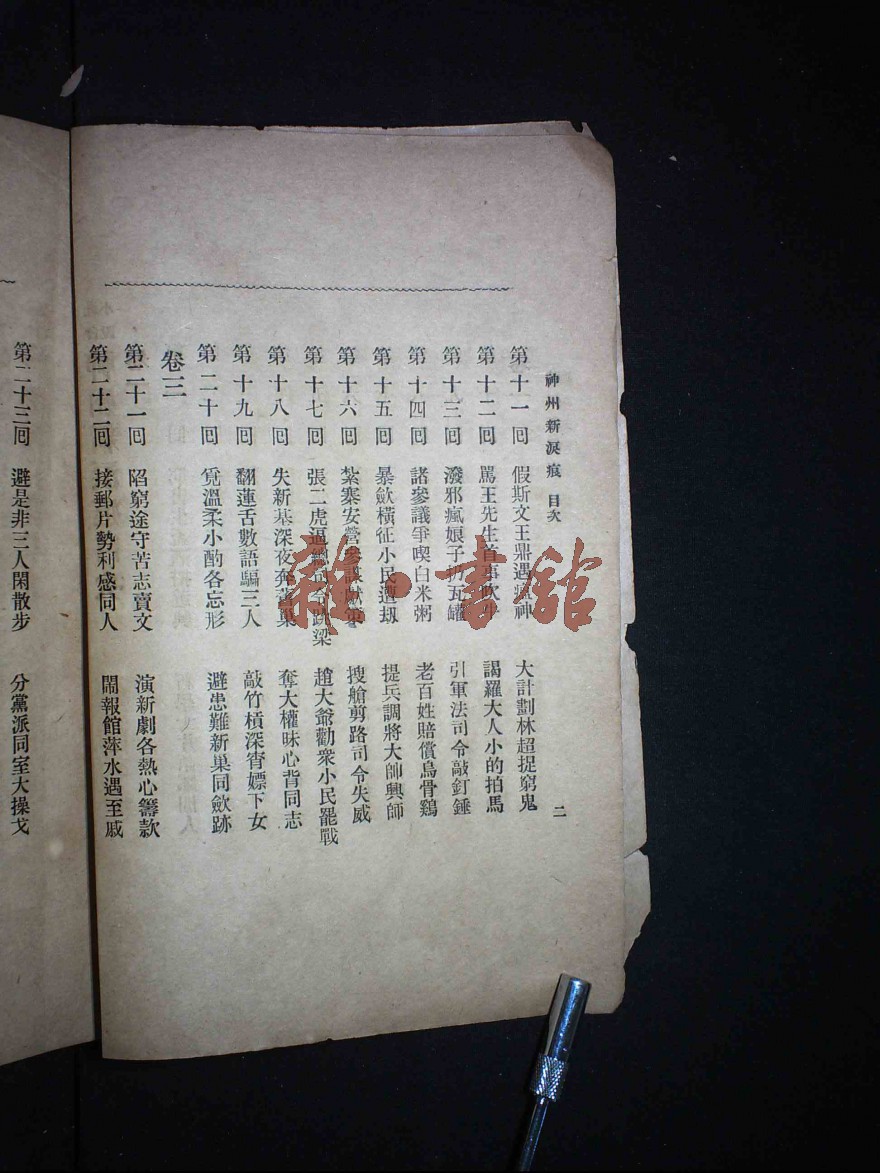 神州新淚痕 目次 二
第十一回 假斯文王鼎遇瘟神 大計劃林超捉窮鬼
第十二回 罵王先生 謁羅大人小的拍馬
第十三回 潑邪瘋娘子扔瓦罐 引軍法司令敲釘錘
第十四回 諸參議爭喫白米粥 老百姓賠償烏骨鷄
第十五回 暴斂橫征小民遭刼 提兵調將大帥興師
第十六回 紮寨安營 搜艙剪路司令失威
第十七回 張二虎逼 跳梁 趙大爺勸衆小民罷戰
第十八回 失新基深夜奔舊巢 奪大權昧心背同志
第十九回 翻蓮舌數語騙三人 敲竹槓深宵嫖下女
第二十回 覓溫柔小酌各忘形 避患難新巢同斂跡
卷三
第二十一回 陷窮途守苦志賣文 演新劇各熱心籌款
第二十二回 接郵片勢利感同人 鬧報館萍水遇至戚
第二十三回 避是非三人閑散步 分黨派同室大操戈
雜·書館